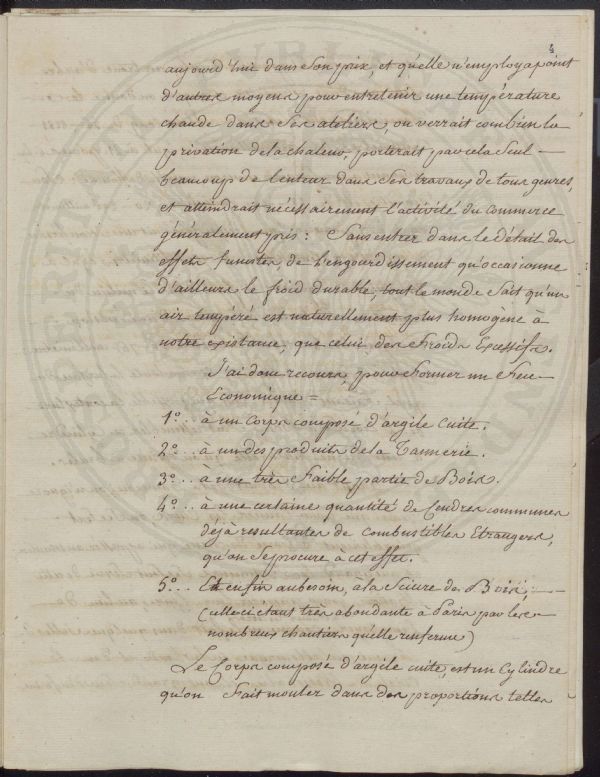 4
aujourd'hui dans son prix, et qu'elle n'employa point
d'autres moyens pour entretenir une température
chaude dans ses ateliers, on verrait combien la
privation de la chaleur, porterait par cela seul —
beaucoup de lenteur dans ses travaux de tous genres,
et atteindrait nécessairement l'activité du commerce
généralement pris : Sans entrer dans le détail des
effets funestes, de l'engourdissement qu'occasionne
d'ailleurs le froid durable, tout le monde sait qu'un
air tempéré est naturellement plus homogene à
notre existance, que celui des Froids Excessifs.
J'ai donc recours, pour Former un Feu —
Economique =
1º.. à un Corps composé d'argile cuite.
2º.. à un des produits de la Tannerie.
3º.. à une très Faible partie de Bois.
4º.. à une certaine quantité de Cendres communes
déjà resultantes de Combustibles Etrangers,
qu'on se procure à cet effet.
5º... Et enfin au besoin, à la Sciure de Bois, —
(celle ci étant très abondante à Paris par les —
nombreux chantiers qu'elle renferme)
Le Corps composé d'argile cuite, est un Cylindre
qu'on Fait mouler dans des proportions telles